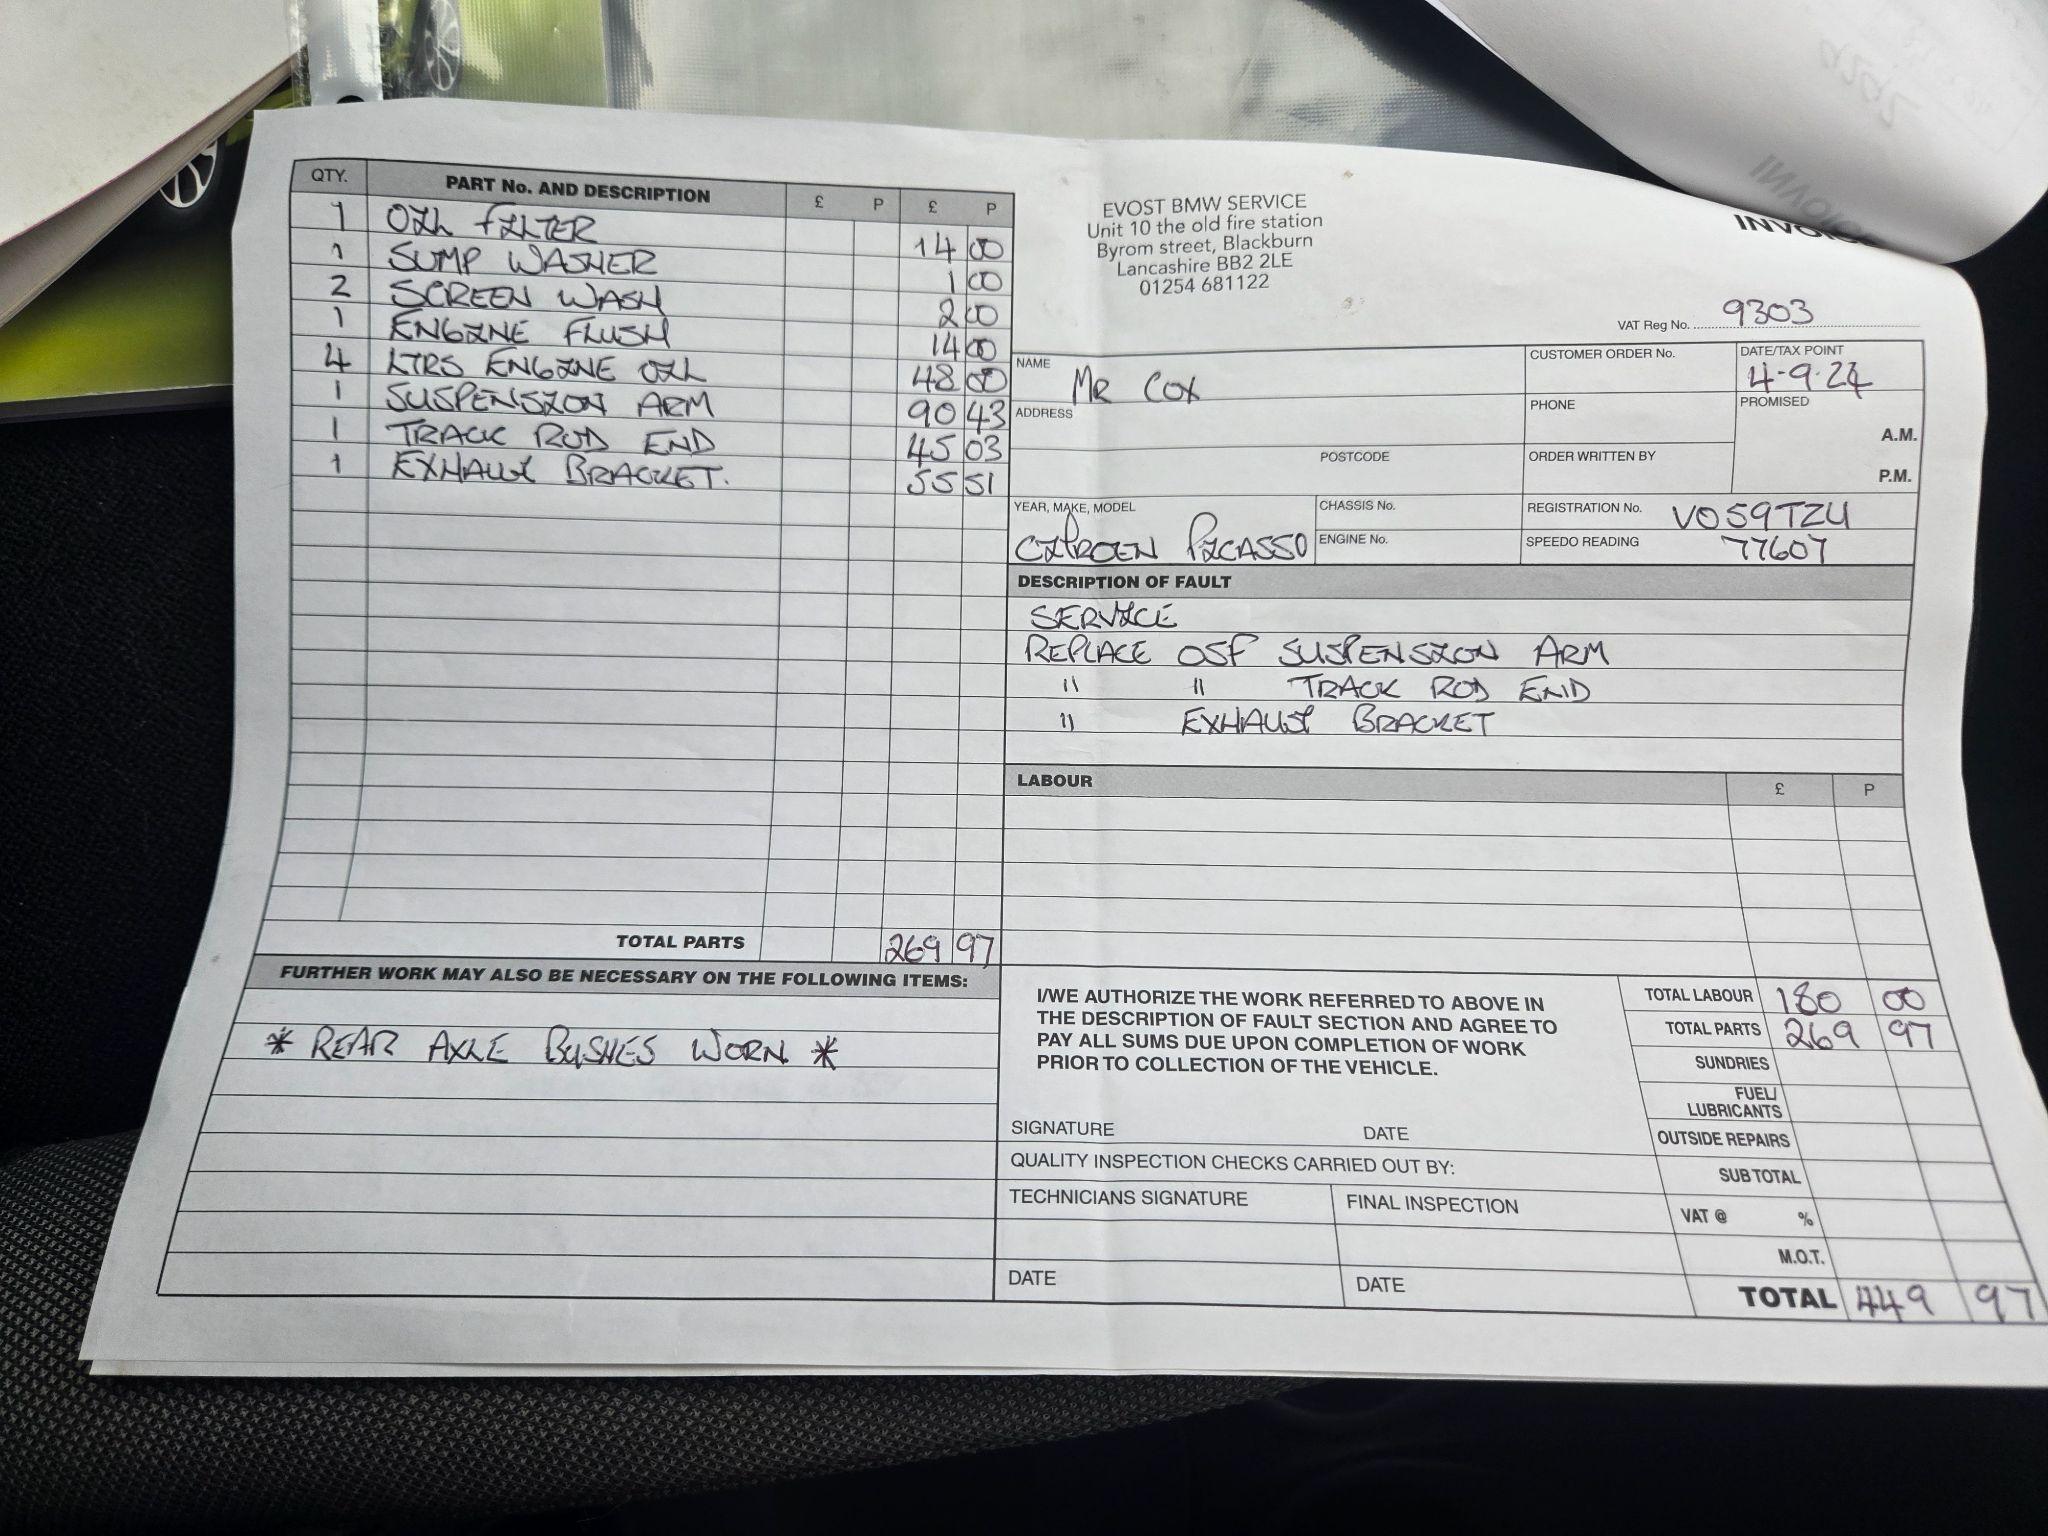 QTY. PART No. AND DESCRIPTION £ P £ P
1 OIL FILTER 14 00
1 SUMP WASHER 1 00
2 SCREEN WASH 2 00
1 ENGINE FLUSH 14 00
4 LTRS ENGINE OIL 48 00
1 SUSPENSION ARM 90 43
1 TRACK ROD END 45 03
1 EXHAUST BRACKET. 55 51
TOTAL PARTS 269 97
FURTHER WORK MAY ALSO BE NECESSARY ON THE FOLLOWING ITEMS:
* REAR AXLE BUSHES WORN *
EVOST BMW SERVICE
Unit 10 the old fire station
Byrom street, Blackburn
Lancashire BB2 2LE
01254 681122
VAT Reg No. 9303
NAME Mr Cox
CUSTOMER ORDER No.
DATE/TAX POINT
4-9-24
ADDRESS
PHONE
PROMISED
A.M.
POSTCODE
ORDER WRITTEN BY
P.M.
YEAR, MAKE, MODEL
CITROEN PICASSO
CHASSIS No.
ENGINE No.
REGISTRATION No. VO59TZU
SPEEDO READING 77607
DESCRIPTION OF FAULT
SERVICE
REPLACE OSF SUSPENSION ARM
" " TRACK ROD END
" EXHAUST BRACKET
LABOUR £ P
I/WE AUTHORIZE THE WORK REFERRED TO ABOVE IN
THE DESCRIPTION OF FAULT SECTION AND AGREE TO
PAY ALL SUMS DUE UPON COMPLETION OF WORK
PRIOR TO COLLECTION OF THE VEHICLE.
SIGNATURE DATE
QUALITY INSPECTION CHECKS CARRIED OUT BY:
TECHNICIANS SIGNATURE FINAL INSPECTION
DATE DATE
TOTAL LABOUR 180 00
TOTAL PARTS 269 97
SUNDRIES
FUEL/
LUBRICANTS
OUTSIDE REPAIRS
SUB TOTAL
VAT @ %
M.O.T.
TOTAL 449 97